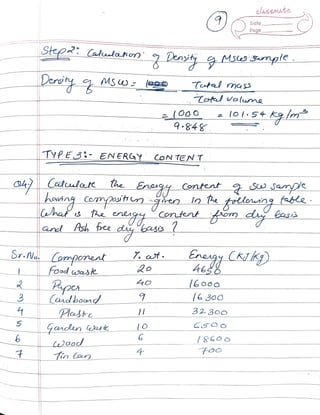 classmate
9
Date
Page
Step 2: Calculation of Density of MSW Sample.
Density of MSW = Total mass
Total volume
= 1000 = 101.54 kg/m³
9.848
TYPE 3:- ENERGY CONTENT
Q4) Calculate the Energy content of SW Sample
having composition given in the following table.
What is the energy content from dry basis
and Ash free dry basis ?
Sr.No. Component % wt. Energy (KJ/kg)
1 Food waste 20 4650
2 Paper 40 16000
3 Cardboard 9 16300
4 Plastic 11 32300
5 Garden waste 10 6500
6 wood 6 18600
7 Tin can 4 700